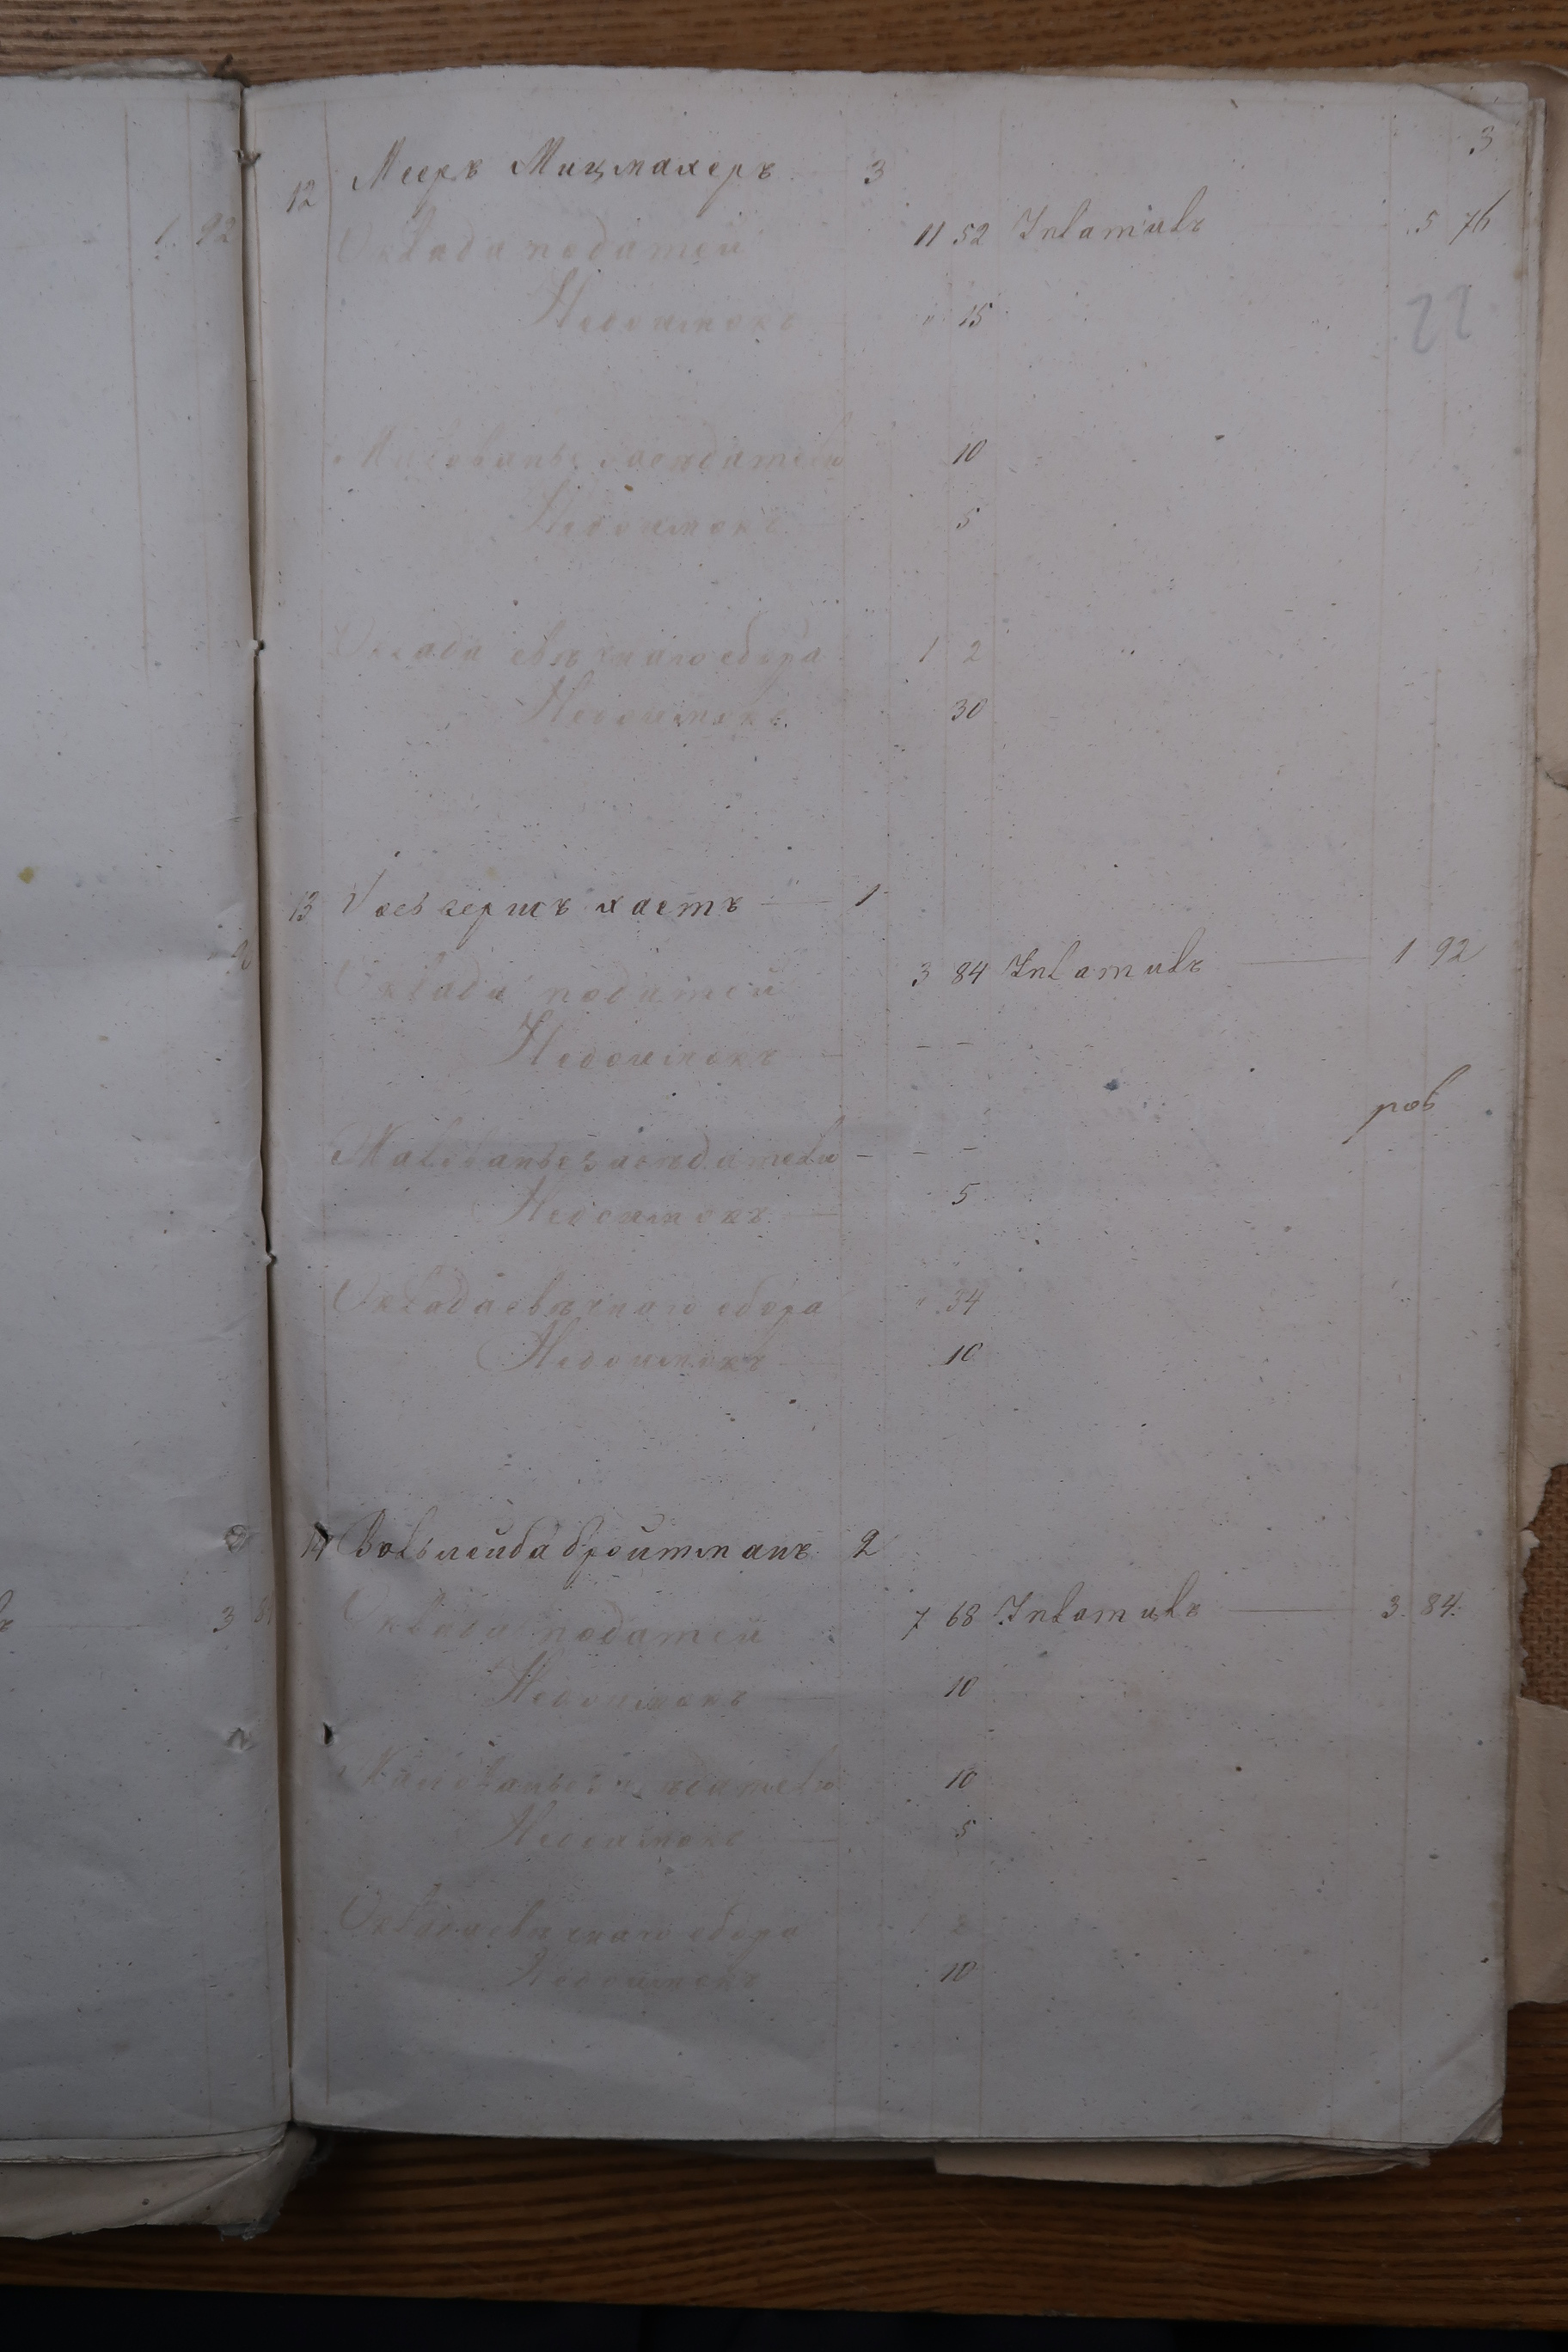 3
12 Мееръ Мицмахеръ 3
1 92
Оклада податей 11 52 Уплатилъ 5 76
Недоимокъ " 15
22
Жалованье засѣдателю 10
Недоимокъ 5
Оклада свѣчнаго сбора 1 2 "
Недоимокъ 30
13 хастъ 1
Оклада податей 3 84 Уплатилъ 1 92
Недоимокъ - -
ров
Жалованье засѣдателю - - -
Недоимокъ 5
Оклада свѣчнаго сбора " 34
Недоимокъ 10
14 Вольлейба бройтманъ 2
Оклада податей 7 68 Уплатилъ 3 84
3 84
Недоимокъ 10
Жалованье засѣдателю 10
Недоимокъ 5
Оклада свѣчнаго сбора
Недоимокъ 10